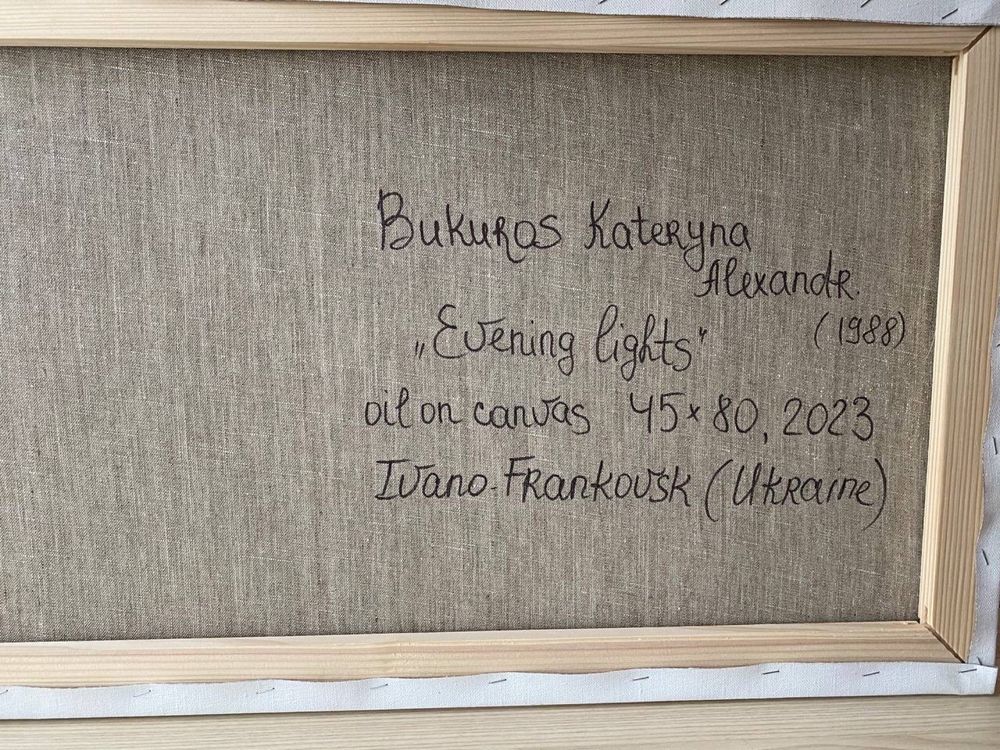 Bukuros Kateryna
Alexandr.
(1988)
„Evening lights"
oil on canvas 45×80, 2023
Ivano-Frankovsk (Ukraine)